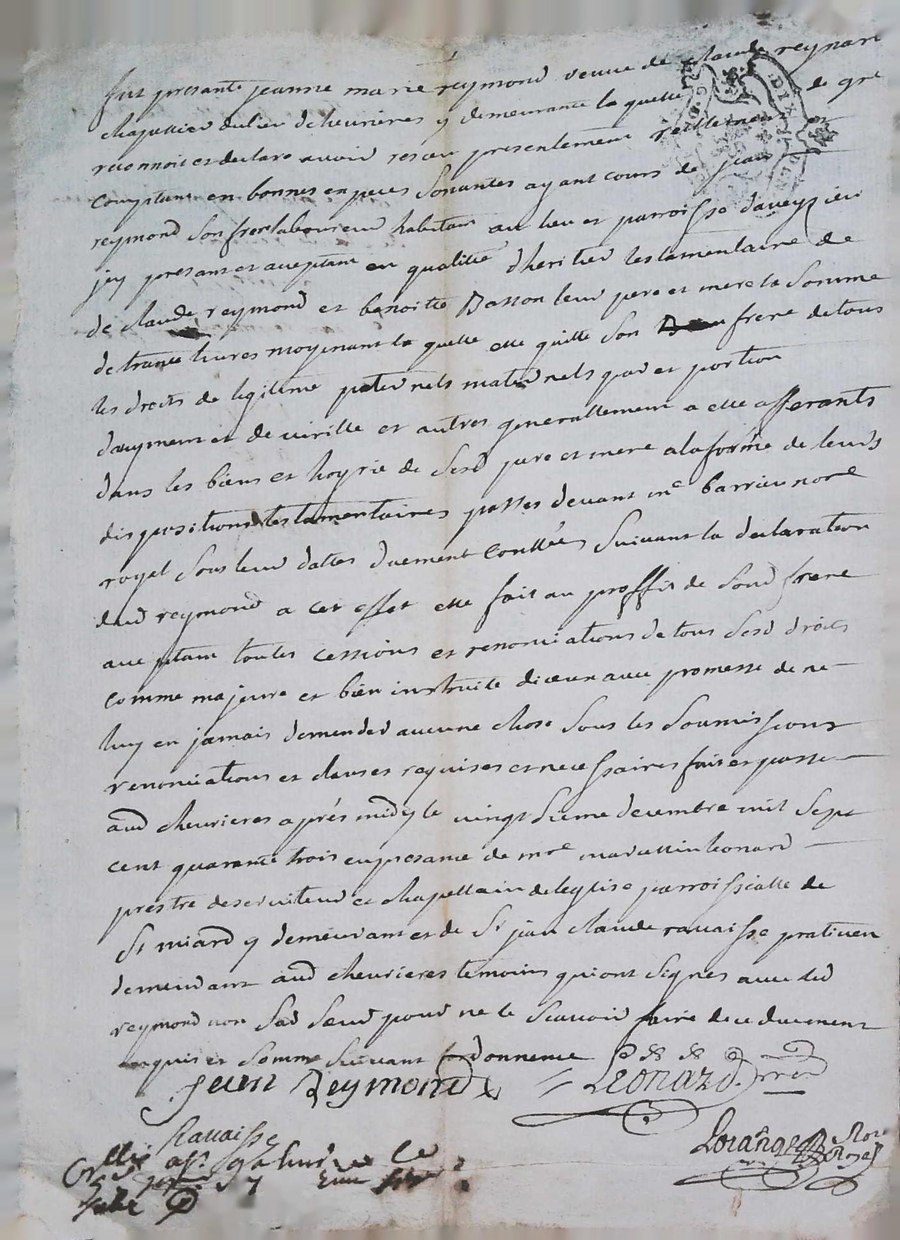 fust presante jeanne marie reymond veuve de claude reynard
chapellier du lieu de chevrieres y demeurante la quelle de gré
reconnoit et declare avoir reseu presentement reellement
comptant en bonnes especes sonantes ayant cours de jean
reymond son frere laboureur habitant au lieu et parroisse daveyzieu
jcy present et aceptant en qualitté dheritier testamentaire de
de claude reymond et benoitte Basson leur pere et mere la somme
de trante livres moyenant la quelle elle quitte son frere de tous
les droits de legitime paternels maternels part et portion
daugment et de virille et autres generallement a elle afferants
dans les biens et hoyrie de sesd pere et mere a la forme de leurs
dispositions testamentaires passés devant me barrieu nore
royal sous leur dattes duement conllés suivant la declaration
dud reymond a cet effet elle fait au proffit de sond frere
aceptant touttes cessions et renonciations de tous sesd droits
comme majeure et bien instruite diceux avec promesse de ne
luy en jamais demender aucune chose sous les soumissions
renonciations et clauses requises et necessaires fait et passé
aud chevrieres aprés midy le vingt decembre mil sept
cent quarante trois en presance de mre leonard
prestre deserviteur et chapellain de leglise parroissialle de
St miard y demeurant et de Sr jean claude ravaisse praticien
demeurant aud chevrieres temoins qui ont signés avec led
reymond non lad pour ne le scavoir faire de ce duement
enquis et sommé suivant lordonnence
jean Reymond Leonard
Ravaisse
Nore
Royal